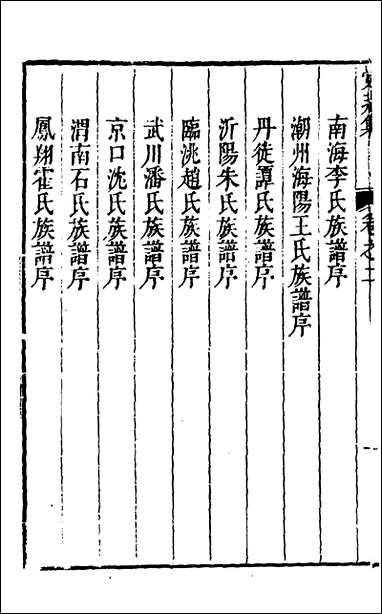 卷之二
南海李氏族譜序
潮州海陽王氏族譜序
丹徒譚氏族譜序
沂陽朱氏族譜序
臨洮趙氏族譜序
武川潘氏族譜序
京口沈氏族譜序
渭南石氏族譜序
鳳翔霍氏族譜序